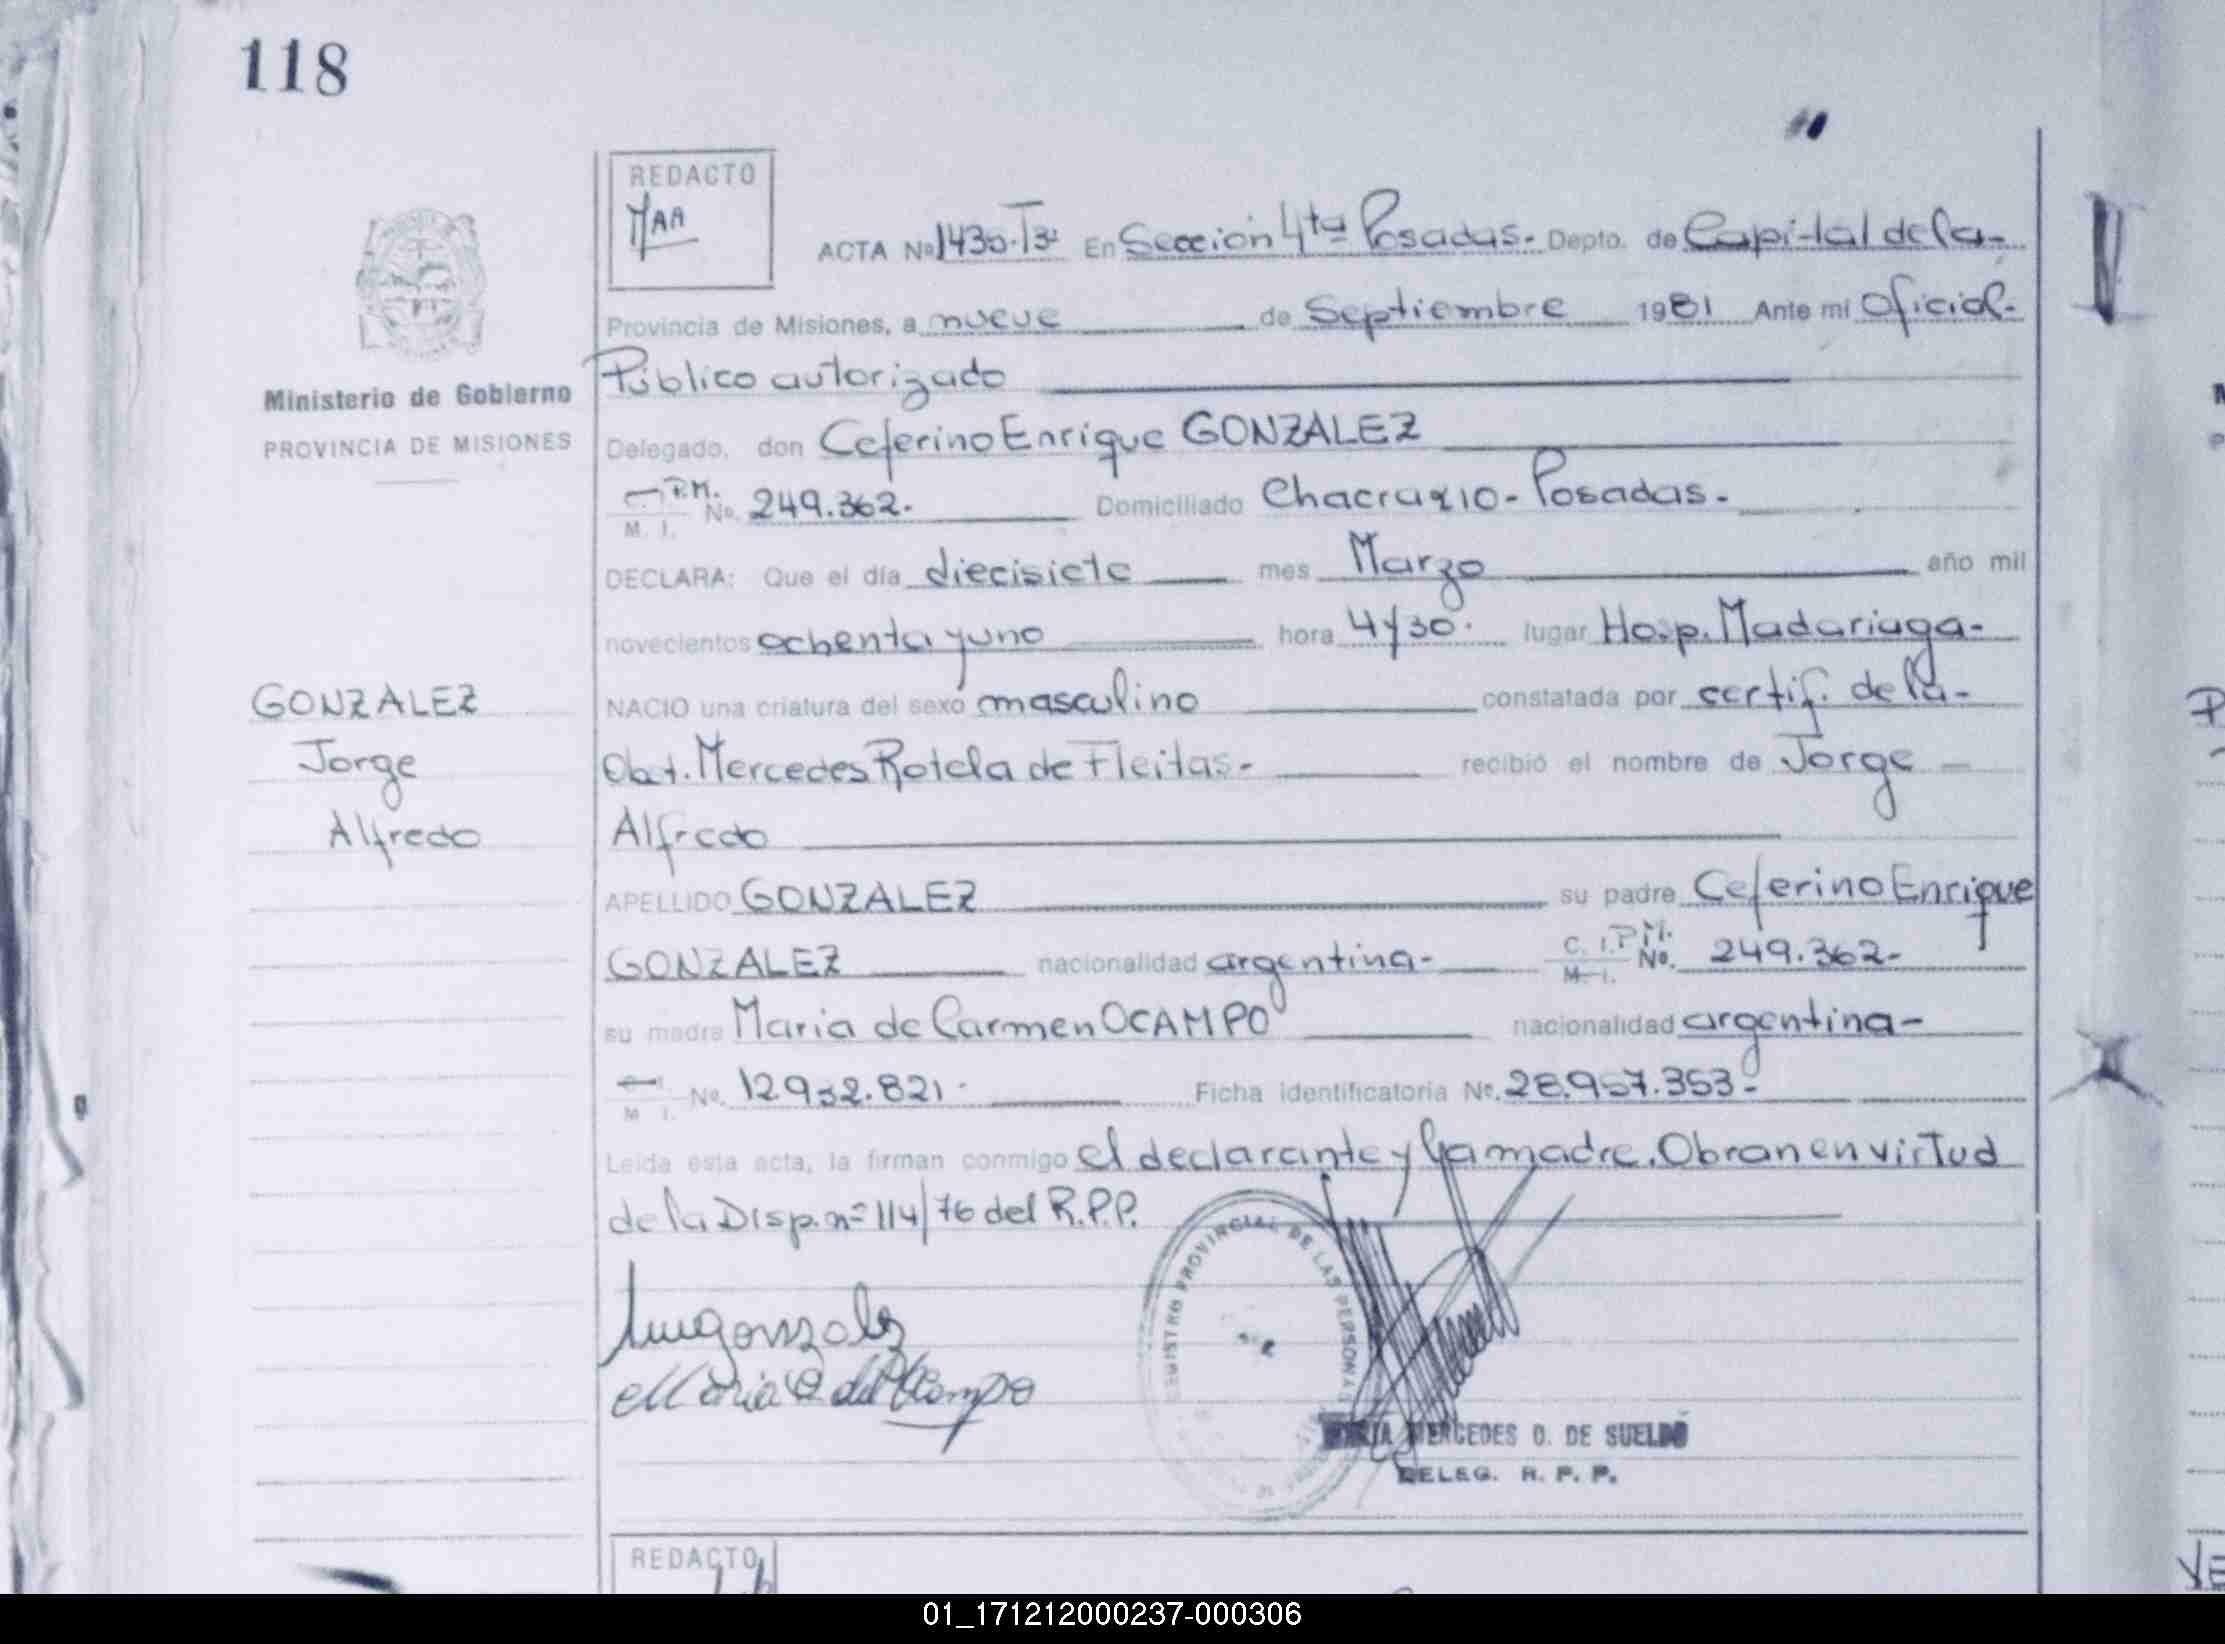 118
REDACTO
MAA
ACTA No 1430-T3º En Sección 4ta Posadas.- Depto. de Capital de la-
Provincia de Misiones, a nueve de Septiembre 1981 Ante mí Oficial-
Público autorizado
Ministerio de Gobierno
PROVINCIA DE MISIONES
Delegado, don Ceferino Enrique GONZALEZ
P.M.
M. I. No. 249.362.- Domiciliado Posadas.-
DECLARA: Que el día diecisiete mes Marzo año mil
novecientos ochenta y uno hora 4y30. lugar Hosp. Madariaga-
NACIO una criatura del sexo masculino constatada por certif. de la-
Obst. Mercedes Rotela de Fleitas.- recibió el nombre de Jorge
Alfredo
GONZALEZ
Jorge
Alfredo
APELLIDO GONZALEZ su padre Ceferino Enrique
GONZALEZ nacionalidad argentina- C. I. P.M. M. I. No. 249.362-
su madre Maria de Carmen OCAMPO nacionalidad argentina-
M I. No. 12.932.821.- Ficha identificatoria No. 28.957.353-
Leída esta acta, la firman conmigo el declarante y la madre. Obran en virtud
de la Disp. nº 114/76 del R.P.P.
REGISTRO PROVINCIAL DE LAS PERSONAS
gonzalez
Maria del Ocampo
MARIA MERCEDES O. DE SUELDO
DELEG. R. P. P.
REDACTO
01_171212000237-000306